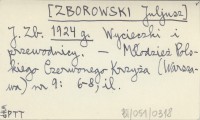 [ZBOROWSKI Juljusz]
J. Zb. 1924 g. Wycieczki i
przewodnicy. - Młodzież Pols-
kiego Czerwonego Krzyża (Warsza-
wa) nr 9: 6-8, il.
81/051/0318
GPTT